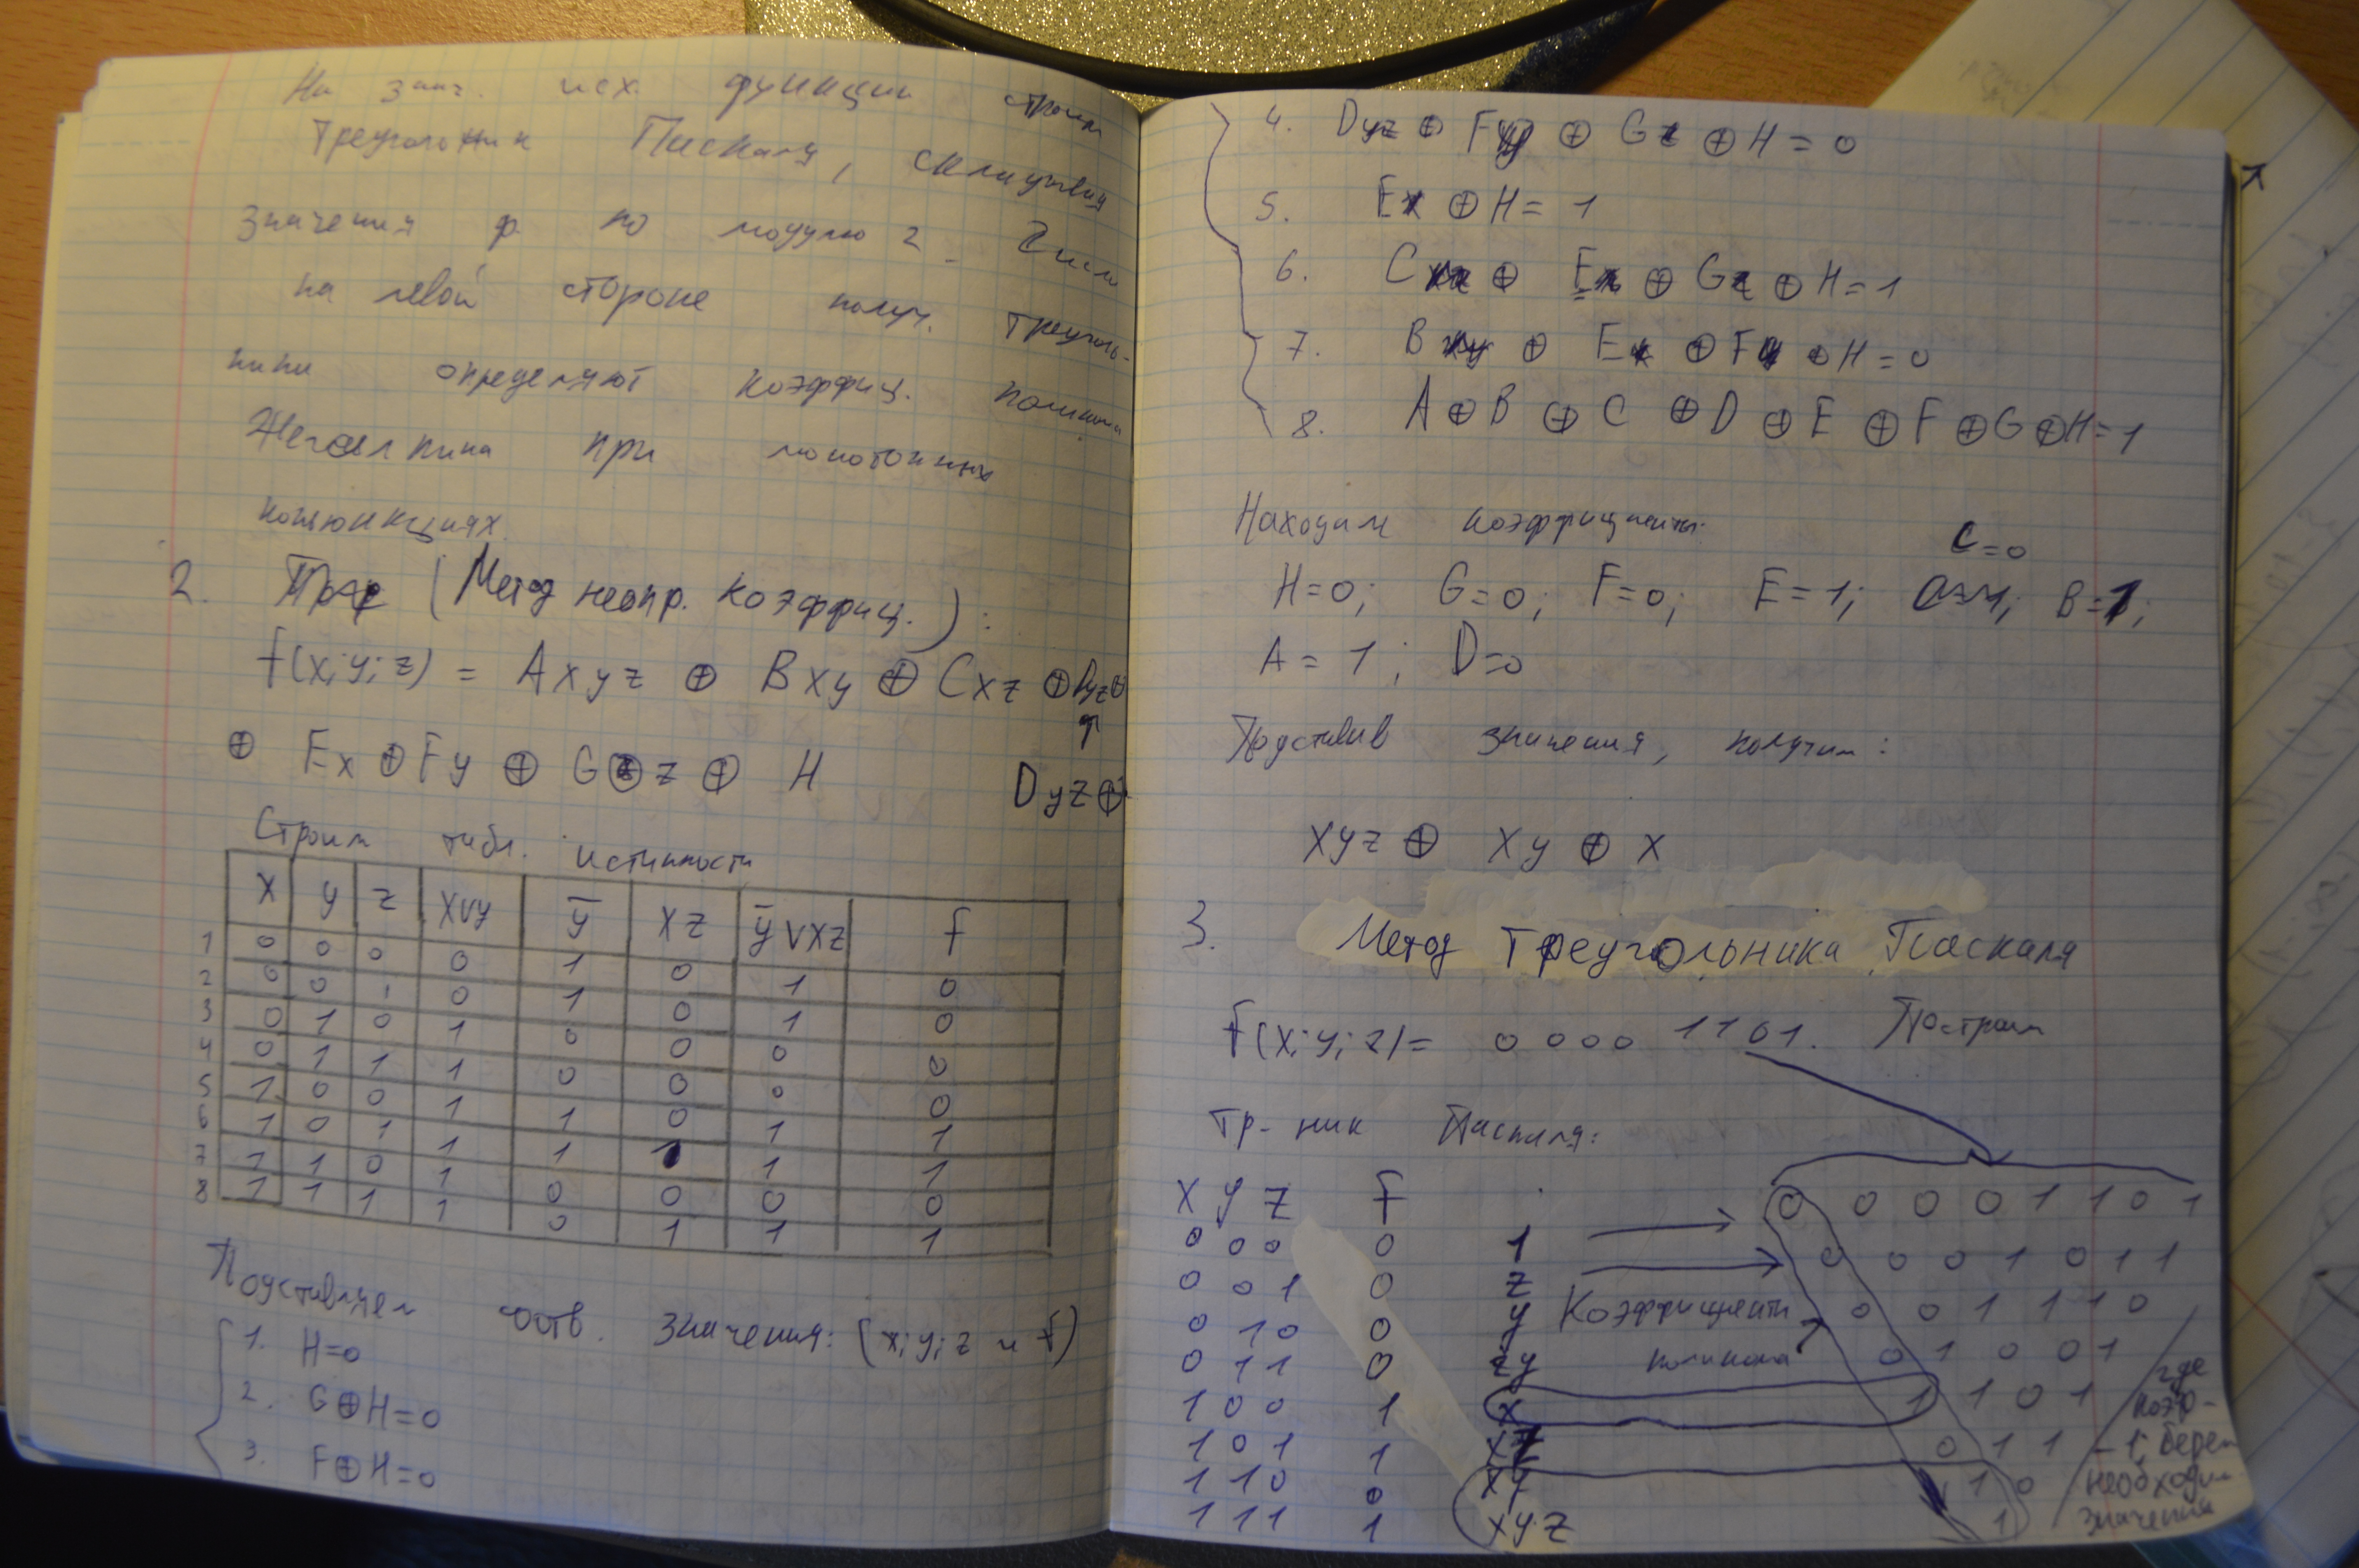 На знач. исх. функции строим
треугольник Паскаля, складывая
значения ф. по модулю 2. Числа
на левой стороне получ. треуголь-
ника определяют коэффиц. полинома
Жегалкина при монотонных
конъюнкциях.
2. (Метод неопр. коэффиц.):
f(x;y;z) = Axyz ⊕ Bxy ⊕ Cxz ⊕ Dyz ⊕
⊕ Ex ⊕ Fy ⊕ G z ⊕ H
Dyz ⊕
Строим табл. истинности
x y z x∨y ȳ xz ȳ∨xz f
1 0 0 0 0 1 0 1 0
2 0 0 1 0 1 0 1 0
3 0 1 0 1 0 0 0 0
4 0 1 1 1 0 0 0 0
5 1 0 0 1 1 0 1 1
6 1 0 1 1 1 1 1 1
7 1 1 0 1 0 0 0 0
8 1 1 1 1 0 1 1 1
Подставляем соотв. значения: (x;y;z и f)
1. H=0
2. G⊕H=0
3. F⊕H=0
4. Dyz ⊕ Fy ⊕ Gz ⊕ H = 0
5. Ex ⊕ H = 1
6. Cxz ⊕ Ex ⊕ Gz ⊕ H = 1
7. Bxy ⊕ Ex ⊕ Fy ⊕ H = 0
8. A ⊕ B ⊕ C ⊕ D ⊕ E ⊕ F ⊕ G ⊕ H = 1
Находим коэффициенты:
C=0
H=0; G=0; F=0; E=1; B=1;
A = 1; D=0
Подставив значения, получим:
xyz ⊕ xy ⊕ x
3. Метод Треугольника Паскаля
f(x;y;z)= 0000 1101. Построим
тр-ник Паскаля:
x y z f 0 0 0 0 1 1 0 1
0 0 0 0 1 0 0 0 1 0 1 1
0 0 1 0 z 0 0 1 1 1 0
0 1 0 0 y Коэффициенты
0 1 1 0 zy полинома 0 1 0 0 1
1 0 0 1 x 1 1 0 1
1 0 1 1 xz 0 1 1
1 1 0 0 xy 1 0
1 1 1 1 xyz 1
где
коэф-
- 1, берем
необходим.
значения